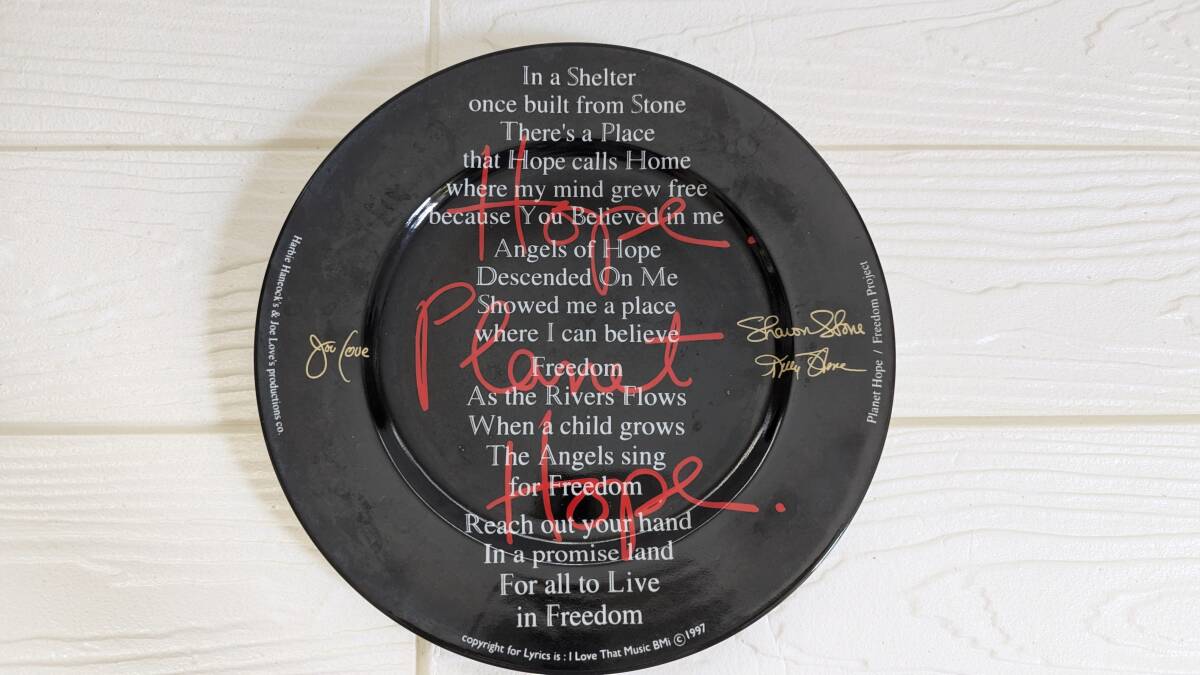 In a Shelter
once built from Stone
There's a Place
that Hope calls Home
where my mind grew free
because You Believed in me
Angels of Hope
Descended On Me
Showed me a place
where I can believe
Freedom
As the Rivers Flows
When a child grows
The Angels sing
for Freedom
Reach out your hand
In a promise land
For all to Live
in Freedom
copyright for Lyrics is : I Love That Music BMi ©1997
Hope.
Planet
Hope.
Harbie Hancock's & Joe Love's productions co.
Joe Love
Sharon Stone
Kelly Stone
Planet Hope / Freedom Project